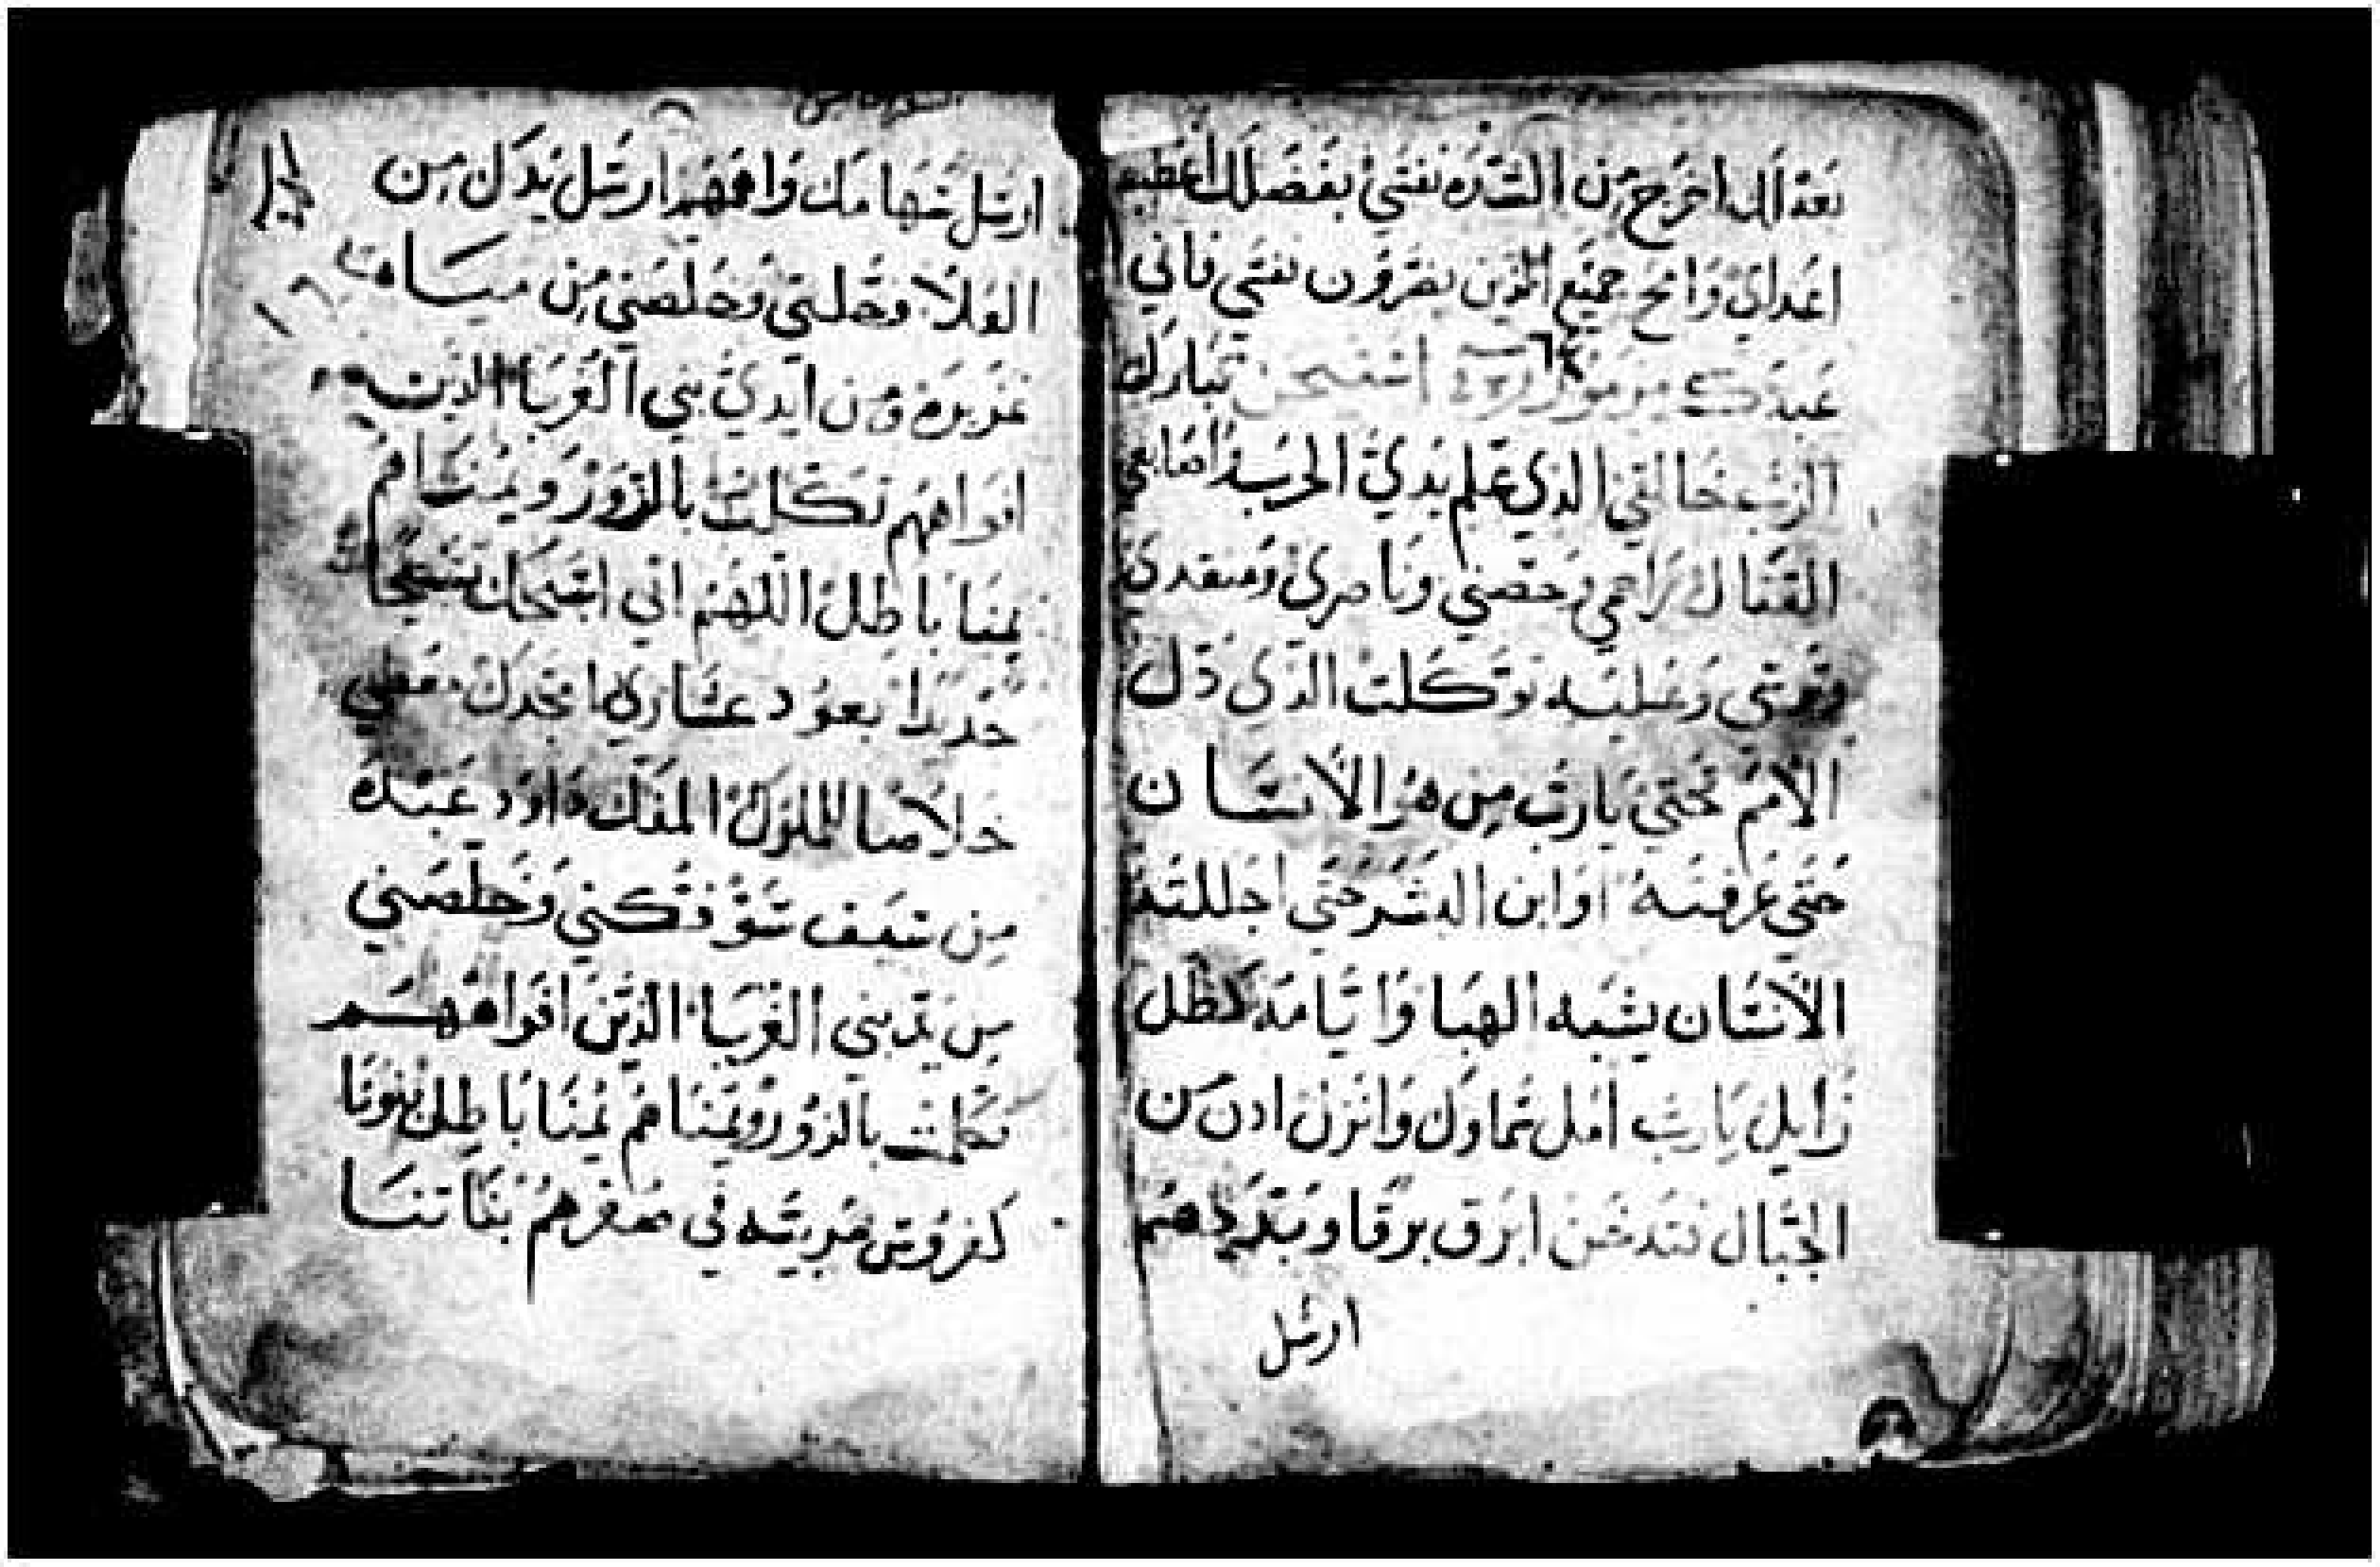 بعدلك اخرج من الشده نفسي بفضلك اعطب
اعداي وامح جميع الذين يضرون نفسي فاني
عبدك مزمور تبارك
الرب خالقي الذي علم يدي الحرب اصابعي
القتال راحمي وحصني وناصري ومنقدي
وعليه توكلت الذي ذلل
الامم تحتي يارب من هو الانسان
حتي عرفته او ابن البشر حتي اجللته
الانسان يشبه الهبا وايامه كظل
زايل يارب امل سماوك وانزل ادن من
الجبال فتدخن ابرق برقا وبددهم
ارسل
ارسل سهامك وافهم ارسل يدك من
العلا ونجلني وخلصني من مياه
غزيره ومن ايدي بني الغربا الذين
افواههم تكلمت بالزور ويمناهم
يمنا باطل اللهم اني اسبحك تسبيحا
جديدا بعود عشاري امجدك معطي
خلاصا للملوك المفك داود عبده
من سيف سو فكني وخلصني
من يد بني الغربا الذين افواههم
تكلمت بالزور ويمناهم يمنا باطل بنونا
كغروس مربيه في صغرهم بناتنا